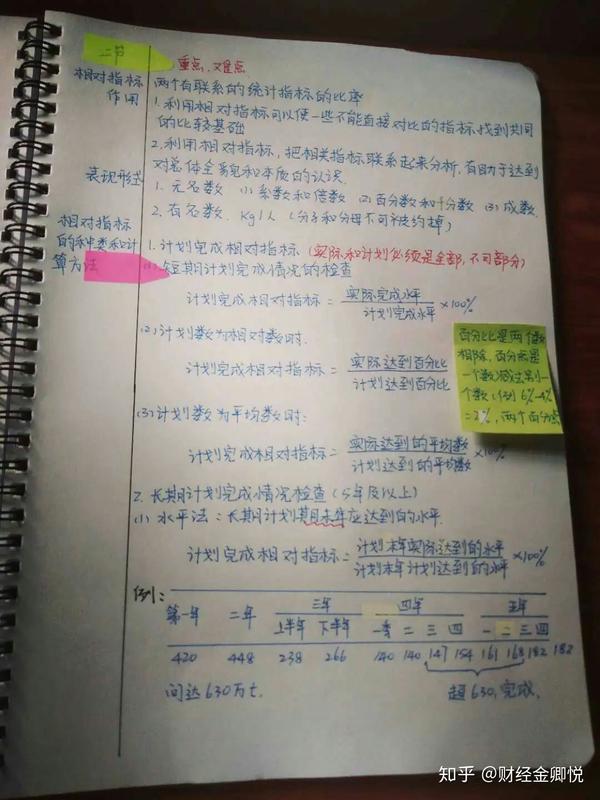 二节
重点、难点
相对指标作用
两个有联系的统计指标的比率
1. 利用相对指标可以使一些不能直接对比的指标找到共同
的比较基础
2. 利用相对指标,把相关指标联系起来分析,有助于达到
对总体全貌和本质的认识.
表现形式
1. 无名数 (1) 系数和倍数 (2) 百分数和千分数 (3) 成数.
2. 有名数. kg/人 (分子和分母不可被约掉)
相对指标
的种类和计
算方法
1. 计划完成相对指标 (实际和计划必须是全部,不可部分)
(1) 短期计划完成情况的检查
计划完成相对指标 = 实际完成水平/计划完成水平 ×100%
(2) 计划数为相对数时.
计划完成相对指标 = 实际达到百分比/计划达到百分比
百分比是两个数
相除,百分点是
一个数减过另一
个数 (例 6%-4%
=2%, 两个百分点
(3) 计划数为平均数时:
计划完成相对指标 = 实际达到的平均数/计划达到的平均数 ×100%
2. 长期计划完成情况检查 (5年及以上)
(1) 水平法: 长期计划期末年应达到的水平.
计划完成相对指标 = 计划末年实际达到的水平/计划末年计划达到的水平 ×100%
例:
第一年 二年 三年 四年 五年
上半年 下半年 一季 二 三 四 一 二 三 四
420 448 238 266 140 140 147 154 161 168 182 182
问达630万t.
超630, 完成.
知乎 @财经金卿悦